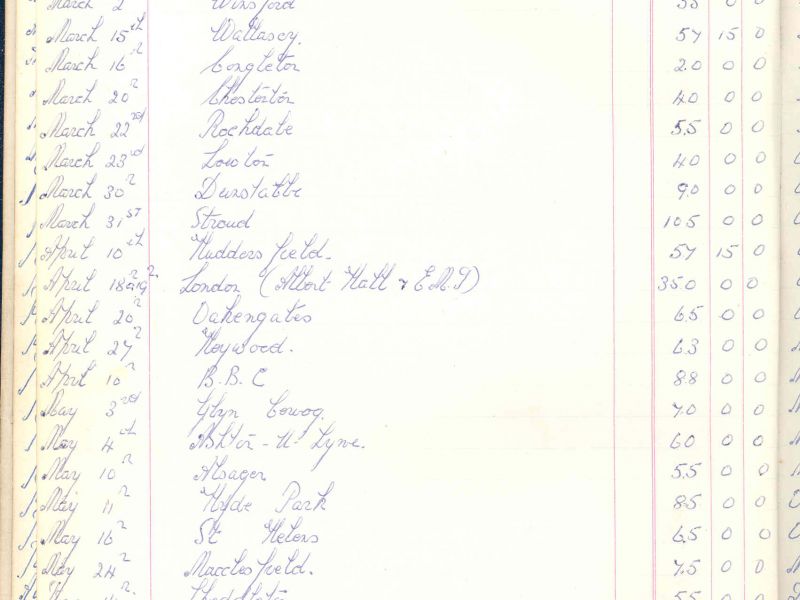 March 2 Winsford 55 0 0
March 15th Wallasey. 57 15 0
March 16 Congleton 20 0 0
March 20 Chesterton 40 0 0
March 22nd Rochdale 55 0 0
March 23rd Lowton 40 0 0
March 30 Dunstable 90 0 0
March 31st Stroud 105 0 0
April 10th Huddersfield. 57 15 0
April 18 & 19 London (Albert Hall & E.M.I) 350 0 0
April 20 Oakengates 65 0 0
April 27 Heywood. 63 0 0
April 10 B.B.C 88 0 0
May 3rd Glyn Ceiriog. 70 0 0
May 4th Ashton-U-Lyne. 60 0 0
May 10 Alsager 55 0 0
May 11 Hyde Park 85 0 0
May 16 St Helens 65 0 0
May 24 Macclesfield. 75 0 0
55 0 0